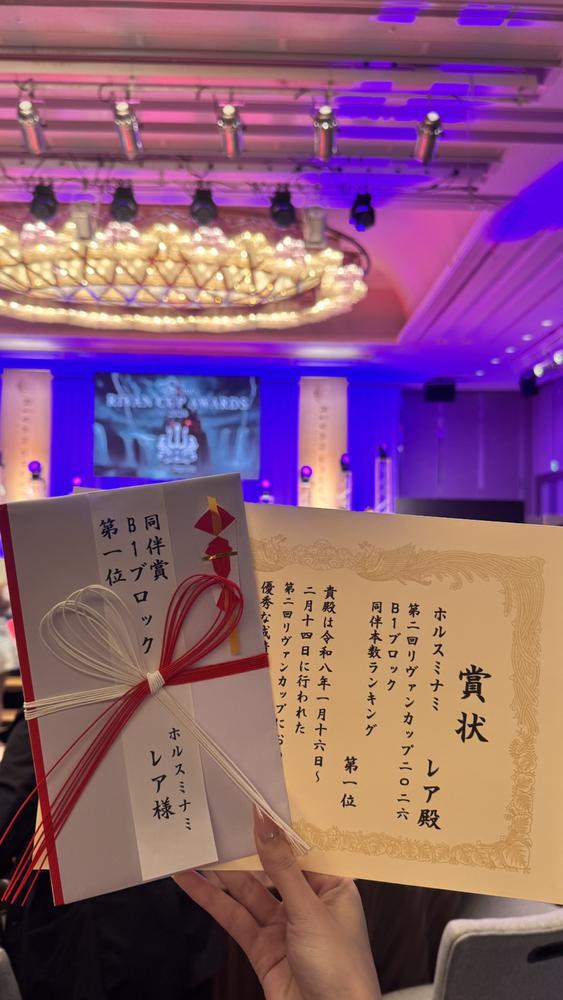 RIVAN CUP AWARDS
同伴賞
B1ブロック
第一位
ホルスミナミ
レア様
賞状
ホルスミナミ レア殿
第二回リヴァンカップ二〇二六
B1ブロック
同伴本数ランキング 第一位
貴殿は令和八年一月十六日〜
二月十四日に行われた
第二回リヴァンカップにお
優秀な成